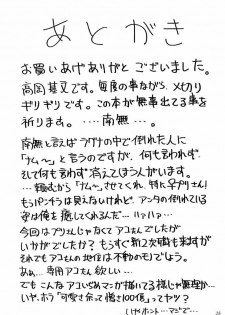 あとがき
お買いあげありがとございました。
高岡基文です。毎度の事ながら、〆切り
ギリギリです。この本が無事出てる事を
祈ります。…… 南無…。
南無と言えば ラグナの中で倒れた人に
「ナム〜」と言うのですが、何も言わず、
そして何も言わず消えてくほうがいます。
…頼むから「ナム〜」させてくれ、特に辛プリさん!
もうパンチラは見えないけれど、アンタの倒れている
姿は俺を癒してくれるんだ… ハァハァ…
今回はプリさんじゃなくてアコさんでしたが
いかがでしたか? もうすぐ新2次職も来ますが
それでもアコさんの地位は不動のモノでしょう。
あぁ… 専用アコさん欲しい…
でもこんなアコいぢめマンガ描いてる様じゃ無理か…
いや、ホラ「可愛さ余って憎さ100倍」ってヤツ?
いやホント…マジで…
25